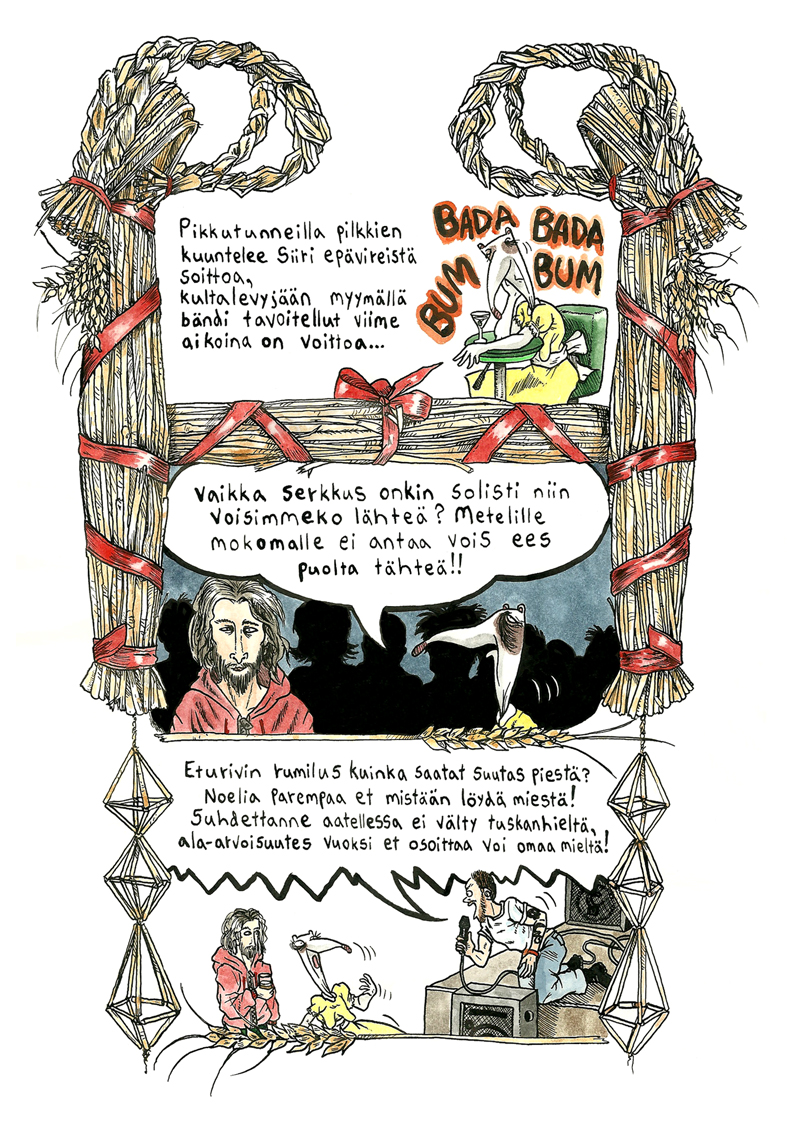 Pikkutunneilla pilkkien
kuuntelee Siiri epävireistä
soittoa,
kultalevyjään myymällä
bändi tavoitellut viime
aikoina on voittoa...
BUM
BADA
BADA
BUM
Vaikka serkkus onkin solisti niin
voisimmeko lähteä? Metelille
mokomalle ei antaa vois ees
puolta tähteä!!
Eturivin rumilus kuinka saatat suutas piestä?
Noelia parempaa et mistään löydä miestä!
Suhdettanne aatellessa ei välty tuskanhieltä,
ala-arvoisuutes vuoksi et osoittaa voi omaa mieltä!